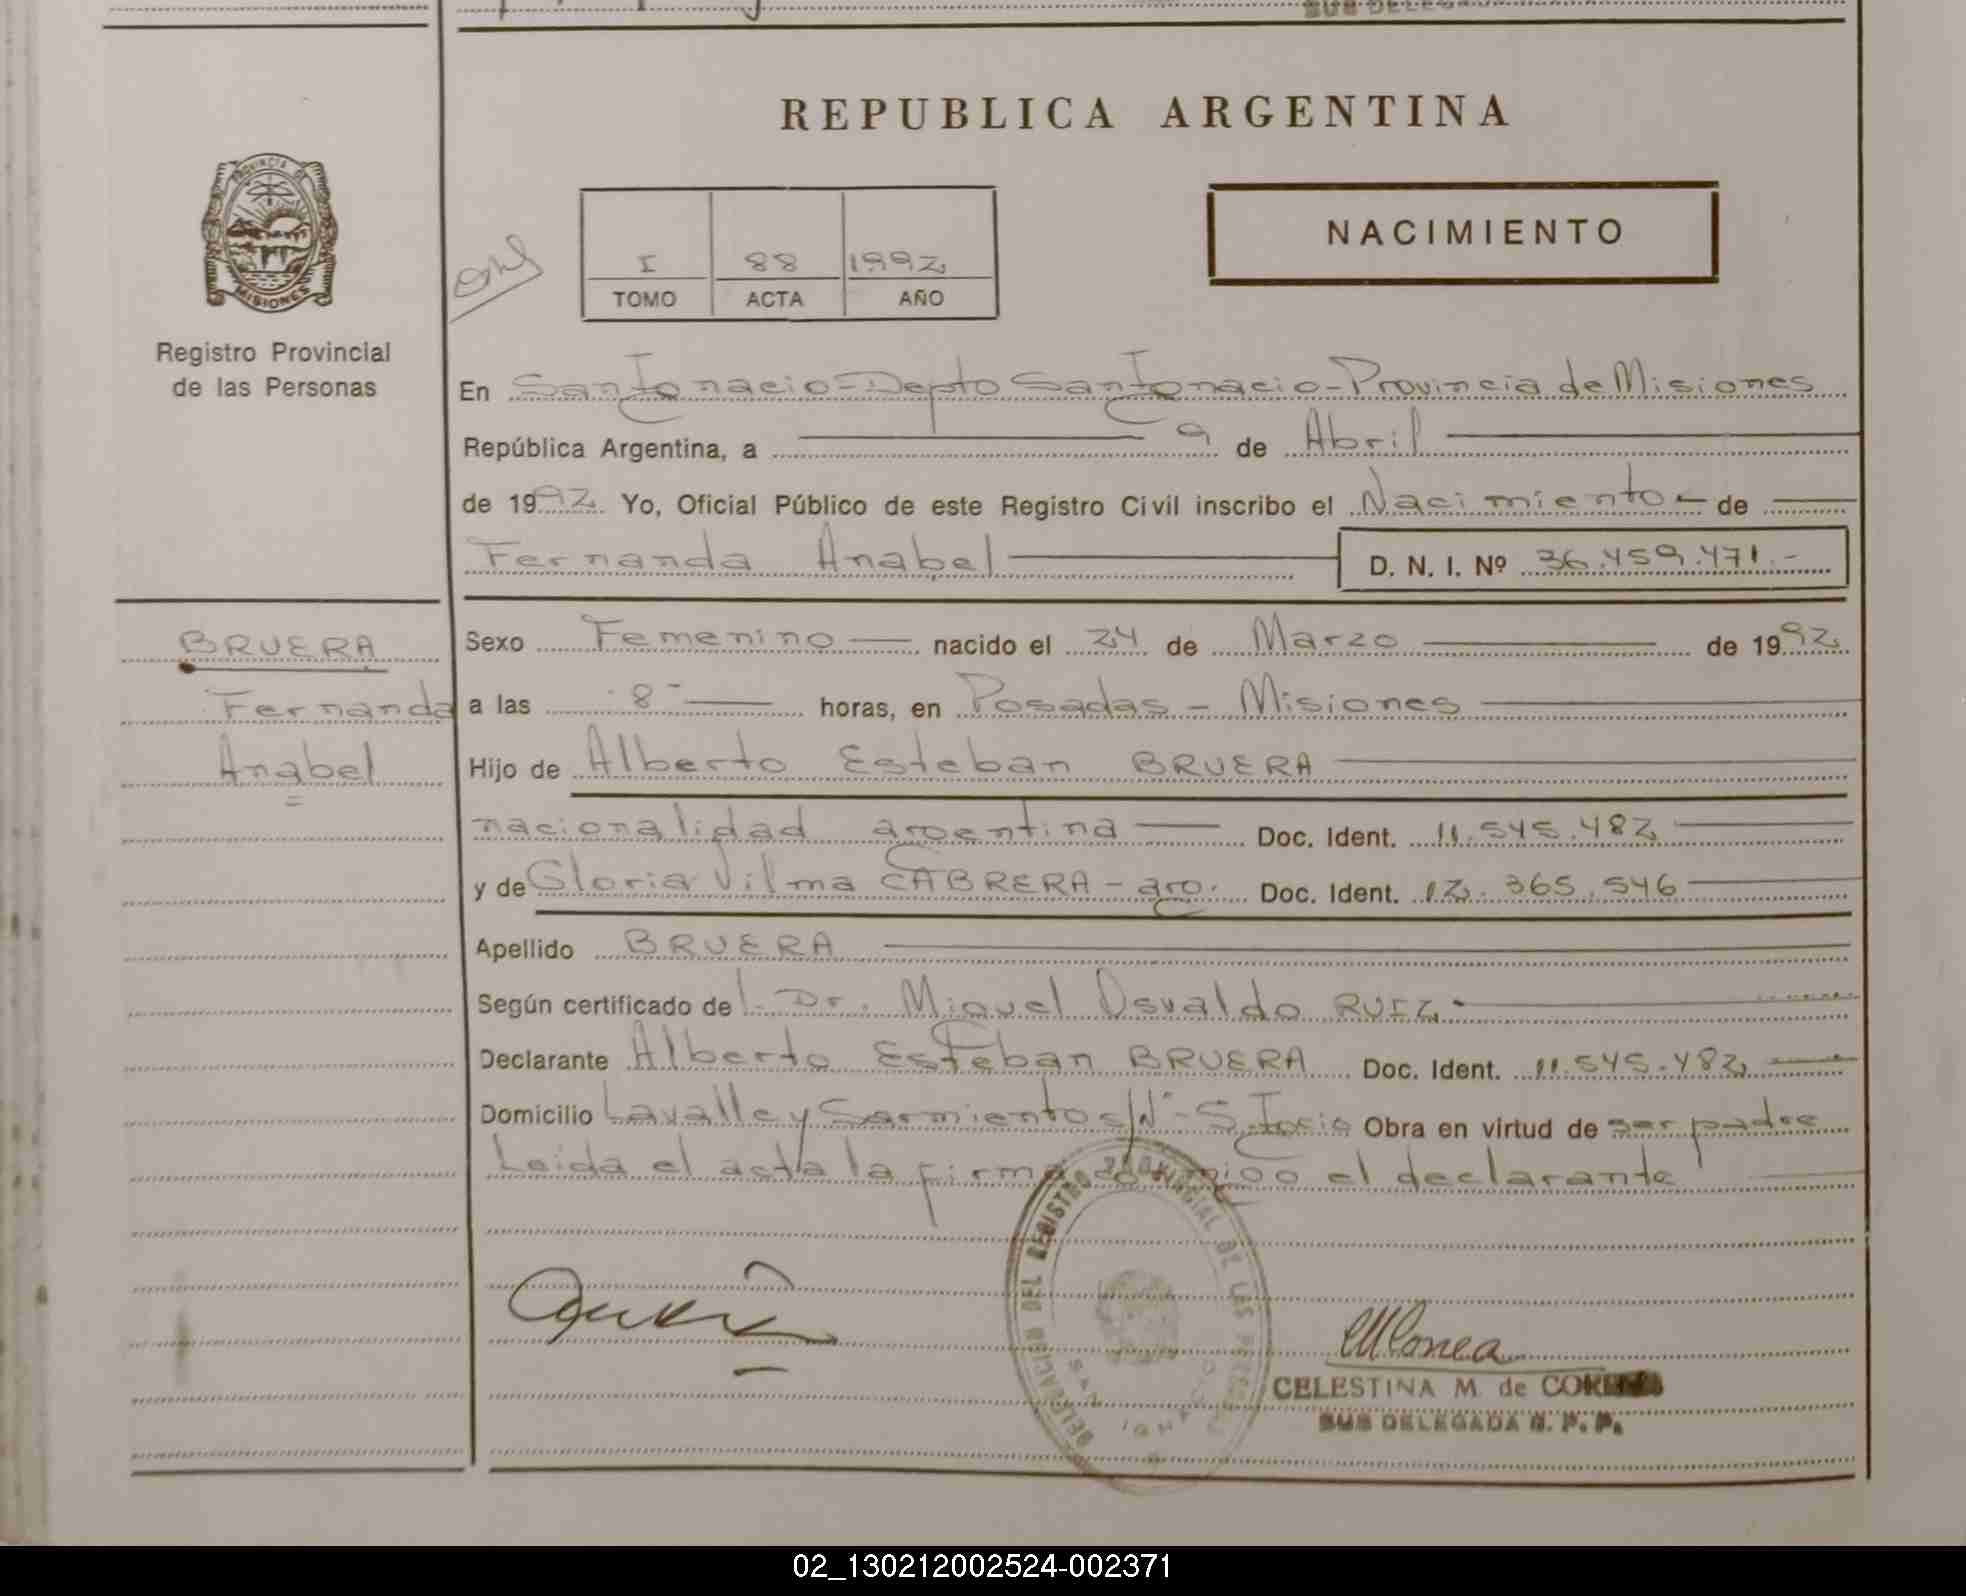 SUB DELEGADA
REPUBLICA ARGENTINA
PROVINCIA DE
MISIONES
Registro Provincial
de las Personas
I 88 1992
TOMO ACTA AÑO
NACIMIENTO
En San Ignacio - Depto San Ignacio - Provincia de Misiones
República Argentina, a 9 de Abril
de 1992 Yo, Oficial Público de este Registro Civil inscribo el Nacimiento - de
Fernanda Anabel D. N. I. Nº 36.459.471.-
BRUERA
Fernanda
Anabel
Sexo Femenino nacido el 24 de Marzo de 1992
a las 8 horas, en Posadas - Misiones
Hijo de Alberto Esteban BRUERA
nacionalidad argentina Doc. Ident. 11.545.482
y de Gloria Vilma CABRERA - arg. Doc. Ident. 12.365.546
Apellido BRUERA
Según certificado del Dr. Miguel Osvaldo RUIZ.
Declarante Alberto Esteban BRUERA Doc. Ident. 11.545.482
Domicilio Lavalle y Sarmiento s/Nº - S. Igcio Obra en virtud de ser padre
Leida el acta la firma conmigo el declarante
DELEGACION DEL REGISTRO PROVINCIAL DE LAS PERSONAS
SAN IGNACIO
CELESTINA M. de CORREA
SUB DELEGADA R. P. P.
02_130212002524-002371